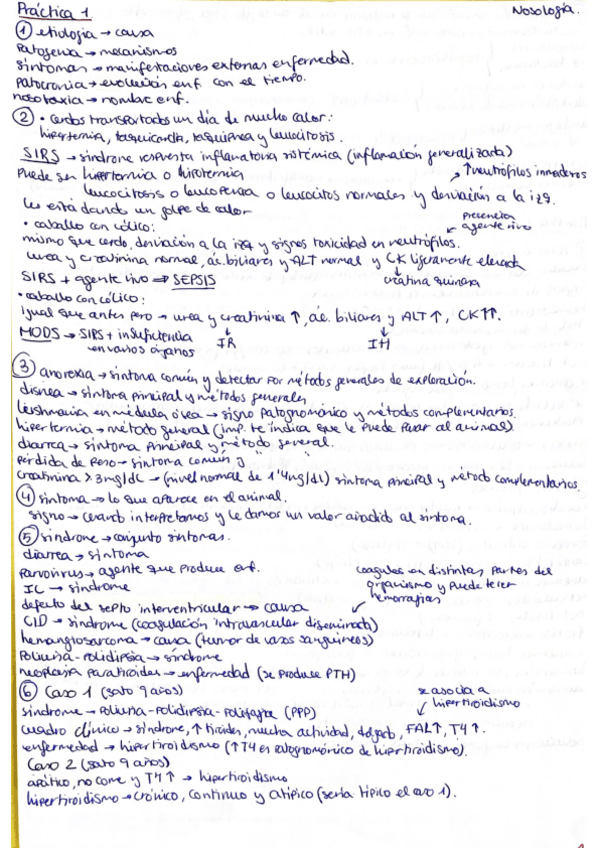 Práctica 1. Nosología.
① etiología → causa
Patogenia → mecanismos
síntomas → manifestaciones externas enfermedad.
patocronia → evolución enf. con el tiempo.
nosotaxia → nombre enf.
② • cerdos transportados un día de mucho calor:
hipertermia, taquicardia, taquipnea y leucocitosis.
SIRS → síndrome respuesta inflamatoria sistémica (inflamación generalizada)
Puede ser hipertermia o hipotermia ↑neutrófilos inmaduros
leucocitosis o leucopenia o leucocitos normales y desviación a la izq.
les está dando un golpe de calor
• caballo con cólico: presencia agente vivo
mismo que cerdo, desviación a la izq y signos toxicidad en neutrófilos.
urea y creatinina normal, ác. biliares y ALT normal y CK ligeramente elevada
SIRS + agente vivo ⇒ SEPSIS creatina quinasa
• caballo con cólico:
igual que antes pero → urea y creatinina ↑, ác. biliares y ALT ↑, CK↑↑.
MODS → SIRS + insuficiencia en varios órganos IR IH
③ anorexia → síntoma común y detectar por métodos generales de exploración.
disnea → síntoma principal y métodos generales
leishmania en médula ósea → signo patognomónico y métodos complementarios.
hipertermia → método general (imp. te indica que le puede pasar al animal)
diarrea → síntoma principal y método general.
pérdida de peso → síntoma común y "
creatinina > 3mg/dL → (nivel normal de 1'4mg/dl) síntoma principal y método complementarios
④ síntoma → lo que aparece en el animal.
signo → cuando interpretamos y le damos un valor añadido al síntoma.
⑤ síndrome → conjunto síntomas.
diarrea → síntoma
Parvovirus → agente que produce enf. coagulos en distintas partes del
IC → síndrome organismo y puede tener
defecto del septo interventricular → causa hemorragias
CID → síndrome (coagulación intravascular diseminada)
hemangiosarcoma → causa (tumor de vasos sanguíneos)
Poliuria-polidipsia → síndrome
neoplasia paratiroides → enfermedad (se produce PTH)
⑥ Caso 1 (gato 9 años) se asocia a
síndrome → Poliuria-Polidipsia-Polifagia (PPP) hipertiroidismo
cuadro clínico → síndrome, ↑ tiroides, mucha actividad, delgado, FAL↑, T4↑.
enfermedad → hipertiroidismo (↑T4 es patognomónico de hipertiroidismo).
Caso 2 (gato 9 años)
apático, no come y T4↑ → hipertiroidismo
hipertiroidismo → crónico, continuo y atípico (sería típico el caso 1).